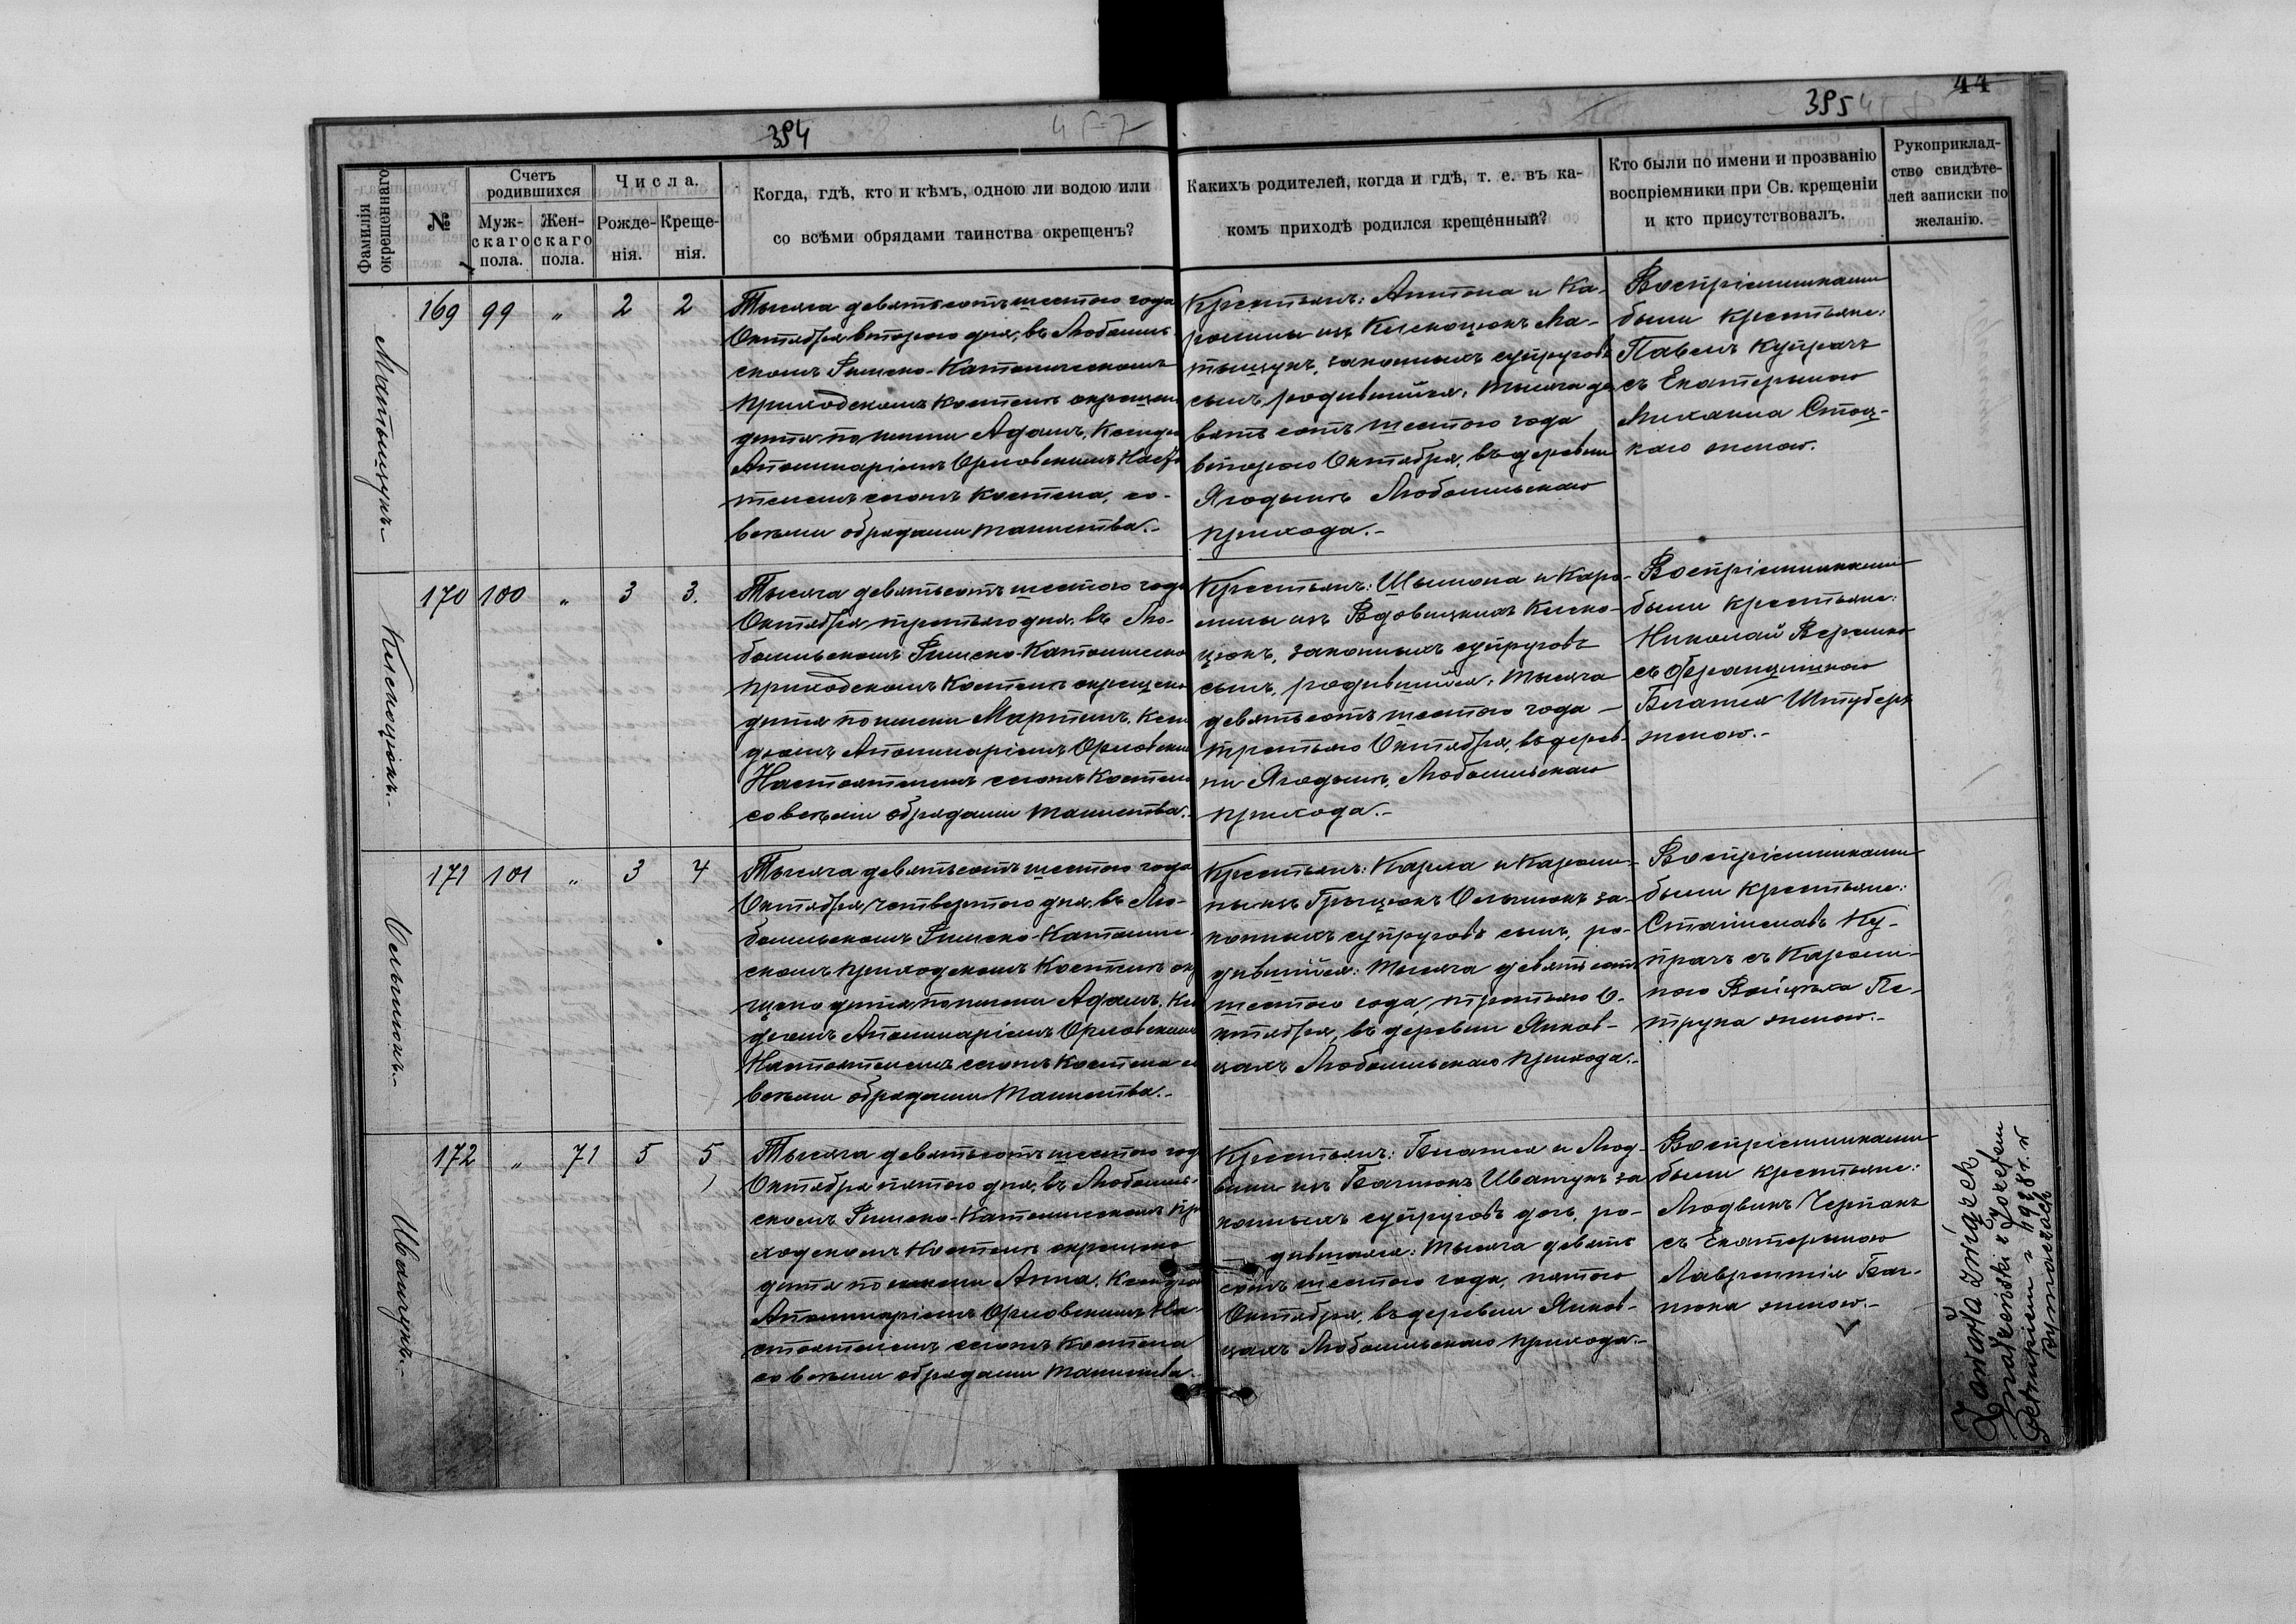 394
395
44
Фамилія окрещеннаго
№
Счетъ родившихся
Муж-
скаго
пола.
Жен-
скаго
пола.
Числа.
Рожде-
нія.
Креще-
нія.
Когда, гдѣ, кто и кѣмъ, одною ли водою или
со всѣми обрядами таинства окрещенъ?
Какихъ родителей, когда и гдѣ, т. е. въ ка-
комъ приходѣ родился крещенный?
Кто были по имени и прозванію
воспріемники при Св. крещеніи
и кто присутствовалъ.
Рукоприклад-
ство свидѣте-
лей записки по
желанію.
Матыщукъ.-
169 99 " 2 2
Тысяча девятьсотъ шестого года
Октября второго дня, въ Любомль
скомъ Римско-Католическомъ
приходскомъ костелѣ окрещено
дитя по имени Адамъ, Ксендзо
Аполинаріемъ Орловскимъ Насто
телемъ сего костела, со-
всѣми обрядами таинства.-
Крестьянъ: Антона и Ка-
ролины изъ Кисѣюкъ Ма-
тыщукъ, законныхъ супруговъ
сынъ, родившійся: тысяча де
вятьсотъ шестого года
второго Октября, въ деревни
Ягодынѣ Любомльскаго
прихода.-
Воспріемниками
были крестьяне:
Павелъ Купрачъ
съ Екатериною
Михаила Стоц-
каго женою.
170 100 " 3 3.
Тысяча девятьсотъ шестого года
Октября третьяго дня, въ Лю-
бомльскомъ Римско-Католическо
приходскомъ костелѣ окрещено
дитя по имени Мартинъ, Ксен
дзомъ Аполинаріемъ Орловским
Настоятелемъ сего костела
со всѣми обрядами таинства.-
Крестьянъ: Шымона и Каро-
лины изъ Вдовицкихъ
законныхъ супруговъ
сынъ, родившійся: тысяча
девятьсотъ шестого года -
третьяго Октября, въ дерев-
ни Ягодынѣ, Любомльскаго
прихода.-
Воспріемниками
были крестьяне:
Николай
съ Францишкою
Блажея Штуберъ
женою.-
Ольшюкъ.-
171 101 " 3 4
Тысяча девятьсотъ шестого года
Октября четвертого дня, въ Лю-
бомльскомъ Римско-Католиче-
скомъ приходскомъ костелѣ окр
щено дитя по имени Адамъ, Ксен
дзомъ Аполинаріемъ Орловскимъ
Настоятелемъ сего костела со
всѣми обрядами таинства.-
Крестьянъ: Карла и Кароли-
ны изъ Грыцюкъ Ольшюкъ за-
конныхъ супруговъ сынъ, ро-
дившійся: тысяча девятьсотъ
шестого года, третьяго О-
ктября, въ деревни Янков-
цахъ Любомльскаго прихода.-
Воспріемниками
были крестьяне:
Станиславъ Ку-
прачъ съ Кароли-
ною Войцѣха Пе-
трука женою.-
Иванчукъ.-
172 " 71 5 5
Тысяча девятьсотъ шестого год
Октября пятого дня, въ Любомль-
скомъ Римско-Католическомъ при
ходскомъ костелѣ окрещено
дитя по имени Анна, Ксендзо
Аполинаріемъ Орловскимъ На-
стоятелемъ сего костела
со всѣми обрядами таинства.-
Крестьянъ: Блажея и Люд-
вики изъ Бачнюкъ Иванчукъ за
конныхъ супруговъ дочь, ро-
дившаяся: тысяча девять
сотъ шестого года, пятого
Октября, въ деревни Янков-
цахъ Любомльскаго прихода.-
Воспріемниками
были крестьяне:
Людвикъ Черпакъ
съ Екатериною
Лаврентія Бач-
нюка женою.-
Zawarła związek
małżeński z Józefem
Petrukiem 1928 r. w
Rymaczach